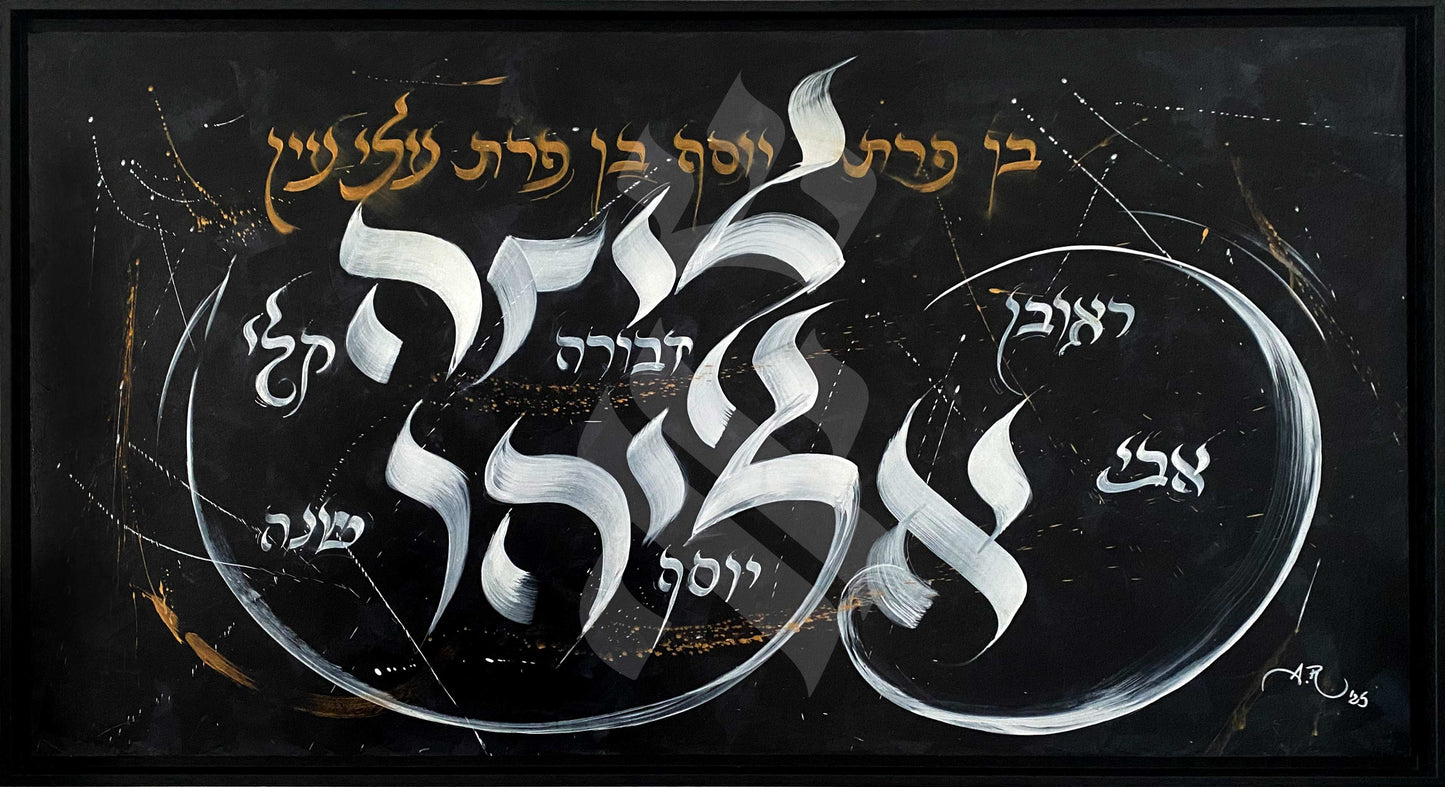 בן פרת יוסף בן פרת עלי עין
ליזה
ראובן
דבורה
קלי
אליהו
אבי
שנה
יוסף
A.R '25